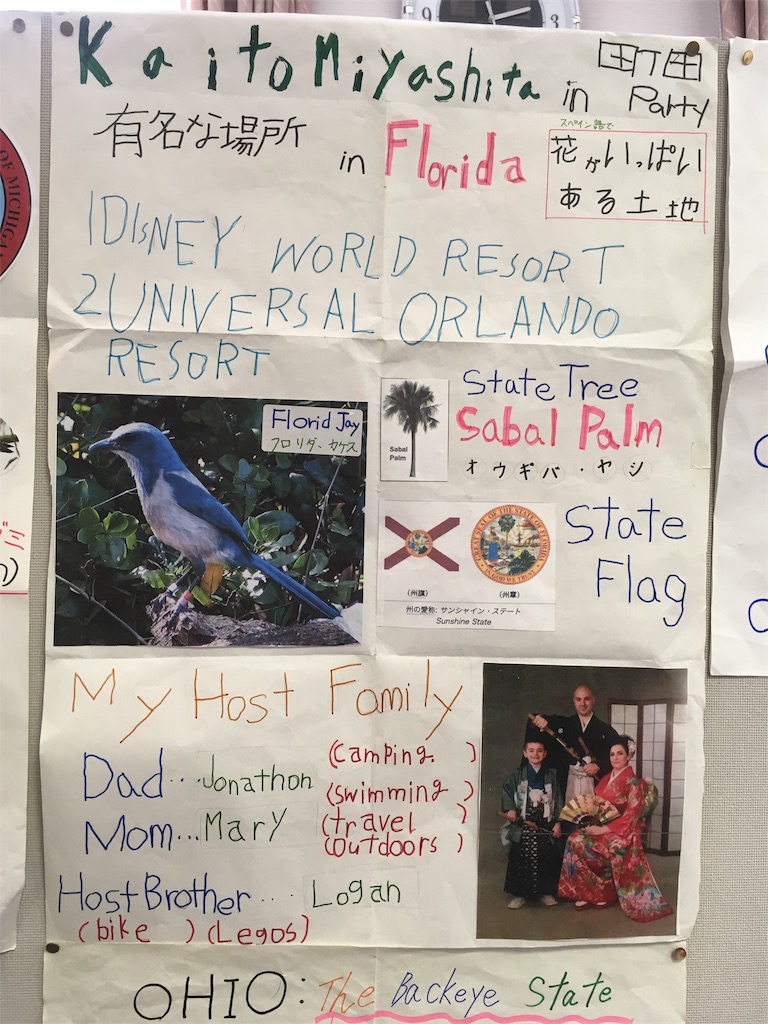 9
3
Kaito Miyashita in 町田 Party
有名な場所 in Florida
スペイン語で
花がいっぱい
ある土地
1DISNEY WORLD RESORT
2UNIVERSAL ORLANDO
RESORT
OF MICHIGA
Florid Jay
フロリダ・カケス
State Tree
Sabal Palm
オウギバ・ヤシ
Sabal
Palm
State
Flag
GREAT SEAL OF THE STATE OF FLORIDA
IN GOD WE TRUST
(州旗)
(州章)
州の愛称: サンシャイン・ステート
Sunshine State
My Host Family
Dad...Jonathon (camping. )
(swimming )
Mom...Mary (travel )
(outdoors )
Host Brother... Logan
(bike ) (Legos)
OHIO: The Backeye State